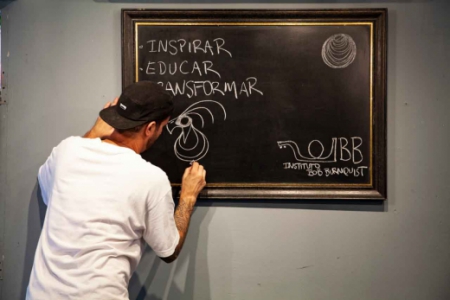 - INSPIRAR
- EDUCAR
TRANSFORMAR
IBB
INSTITUTO
BOB BURNQUIST